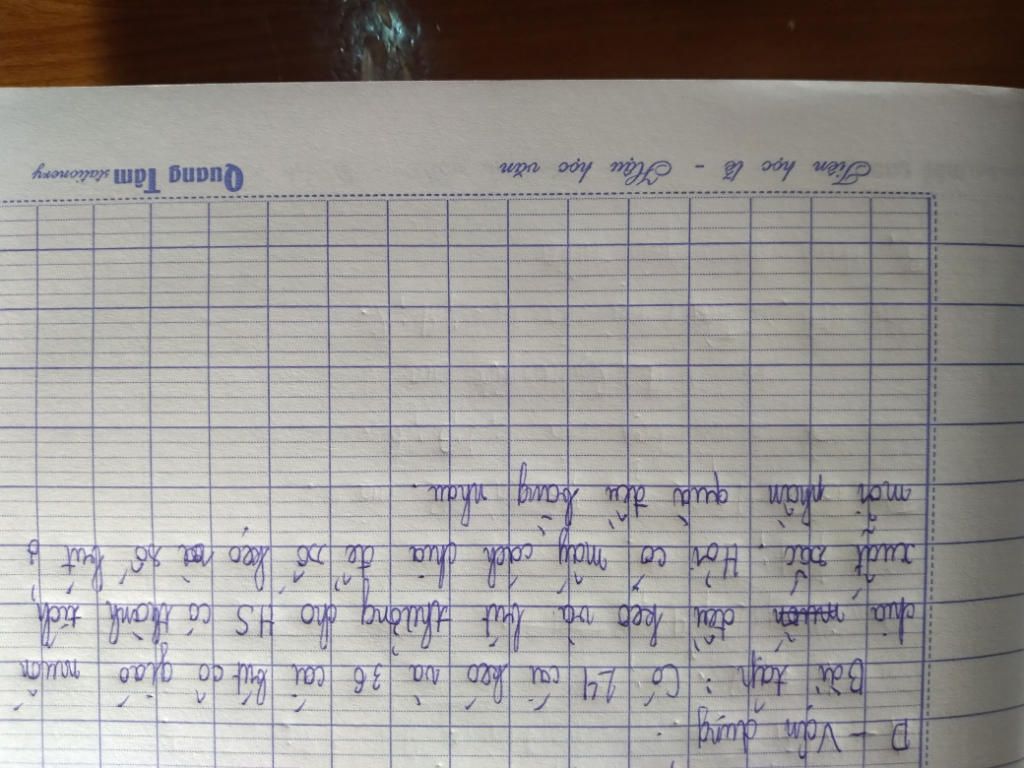 D - Vận dụng
Bài tập : Có 24 cái kẹo và 36 cái bút cô giáo muốn
chia muốn đều kẹo và bút thưởng cho HS có thành tích
xuất sắc. Hỏi có mấy cách chia để số kẹo và số bút ở
mỗi phần quà đều bằng nhau.
Tiên học lễ - Hậu học văn
Quang Tám stationery